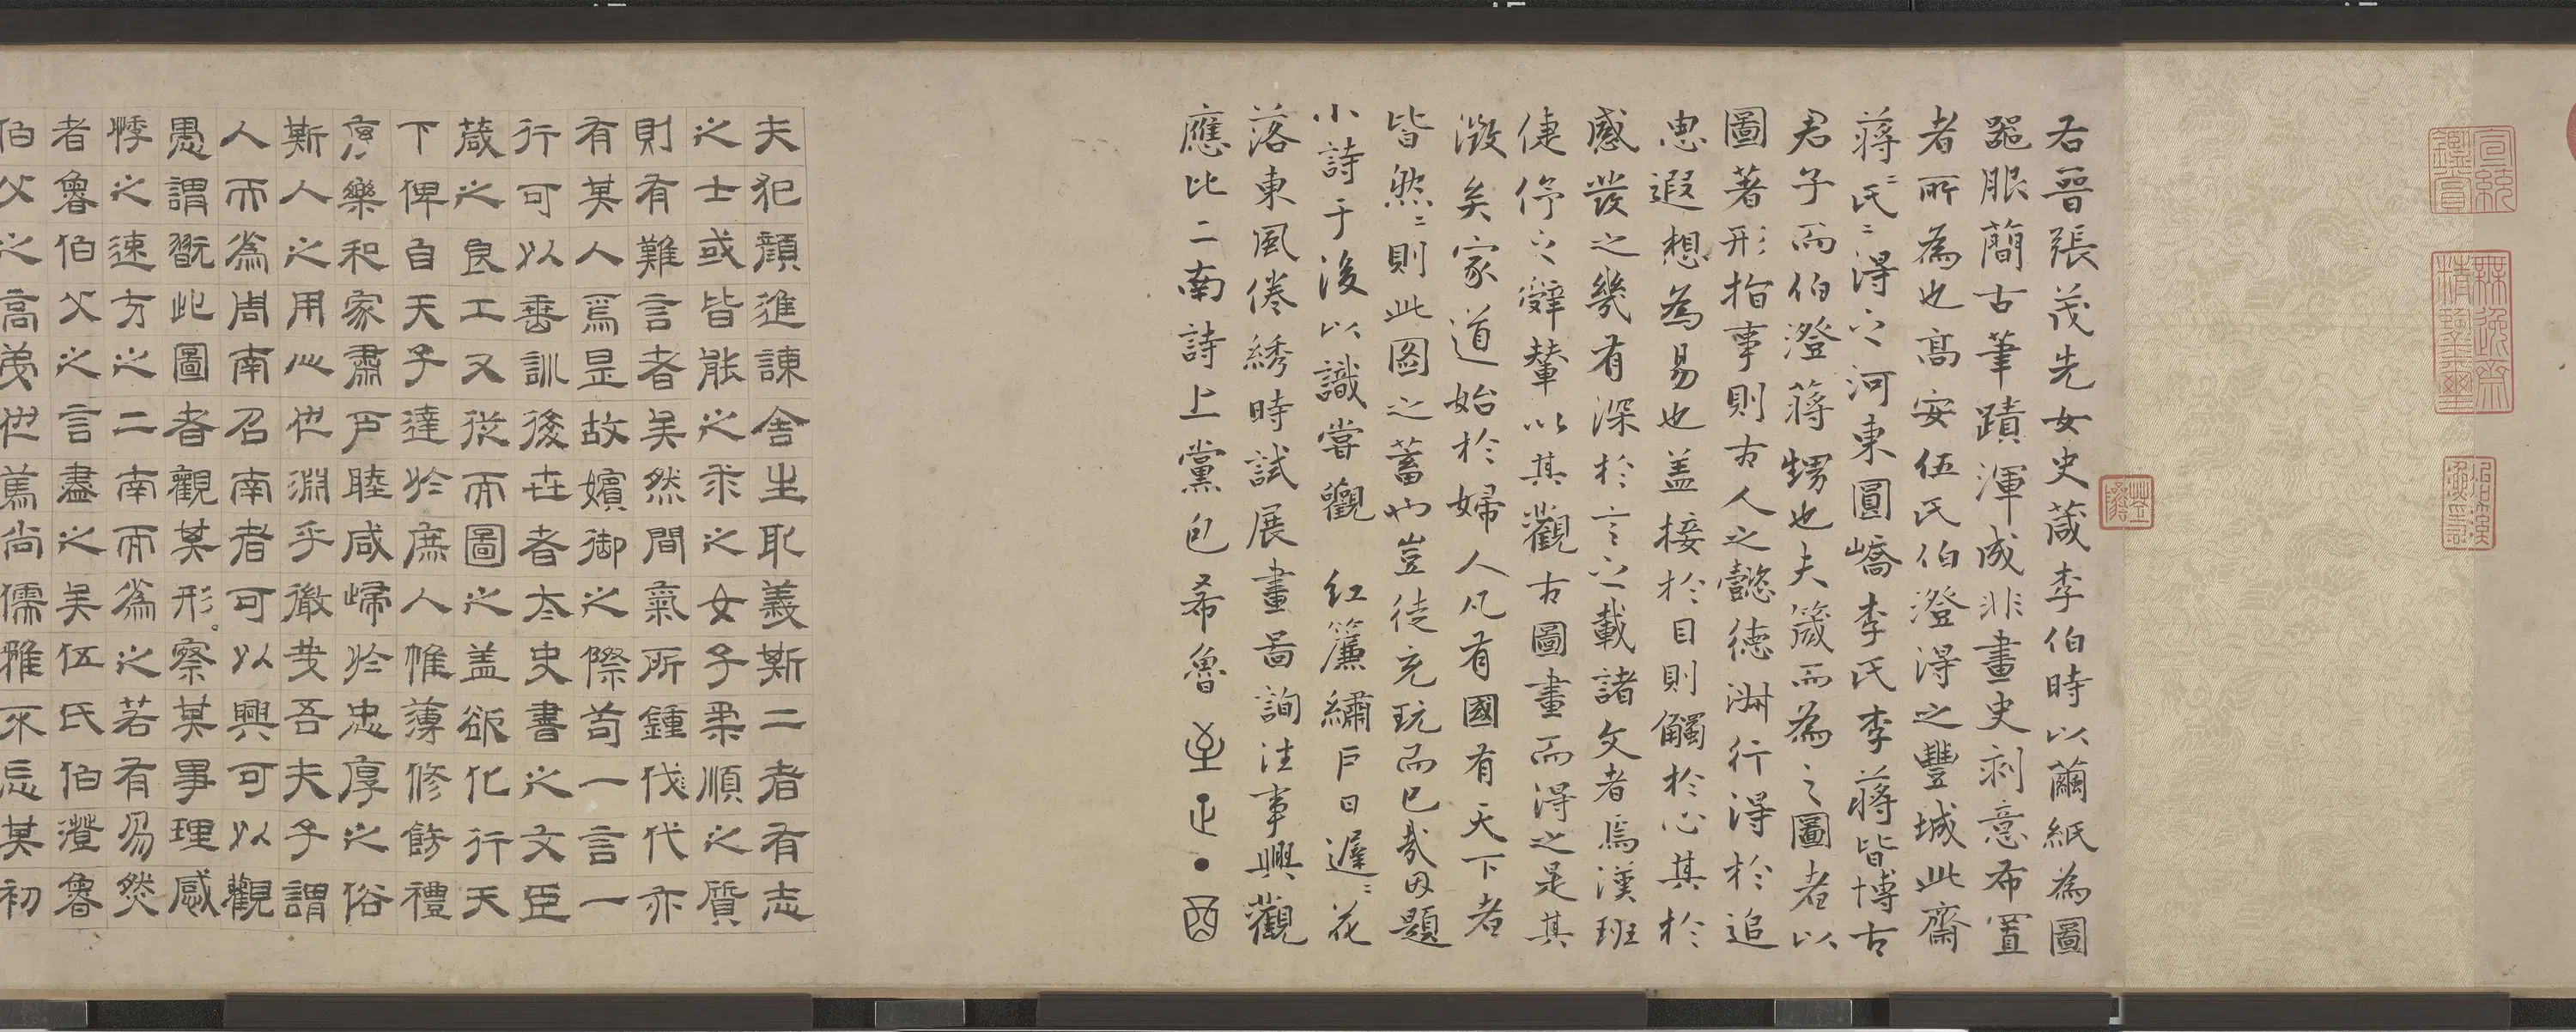 宣統鑒賞
無逸齋精鑒璽
右晉張茂先女史箴李伯時以繭紙為圖
器服簡古筆蹟渾成非畫史刻意布置
者所為也高安伍氏伯澄得之豐城此齋
蔣〻氏〻得之河東圓嶠李氏李蔣皆博古
君子而伯澄蔣甥也夫箴而為之圖者以
圖著形指事則古人之懿德淋行得於追
思遐想為易也盖接於目則觸於心其於
感發之幾有深於言之載諸文者焉漢班
倢伃之辭輦以其觀古圖畫而得之是其
澂矣家道始於婦人凡有國有天下者
皆然〻則此圖之蓄也豈徒充玩而已哉因題
小詩于後以識嘗觀 紅簾繡戶日遲〻花
落東風倦綉時試展畫啚詢往事興觀
應比二南詩上黨包希魯 至正
夫犯顏進諫舍生取義斯二者有志
之士或皆能之求之女子柔順之質
則有難言者矣然間氣所鍾伐代亦
有其人焉是故嬪御之際苟一言一
行可以垂訓後世者太史書之文臣
箴之良工又從而圖之盖欲化行天
下俾自天子達於庶人帷薄修飭禮
度樂和家肅戶睦咸歸於忠厚之俗
斯人之用心也淵乎徽哉吾夫子謂
人而為周南召南者可以興可以觀
愚謂翫此圖者觀其形察其事理感
悸之速方之二南而為之若有易然
者魯伯父之言盡之矣伍氏伯澄魯
伯父之高弟也篤尚儒雅不忘其初